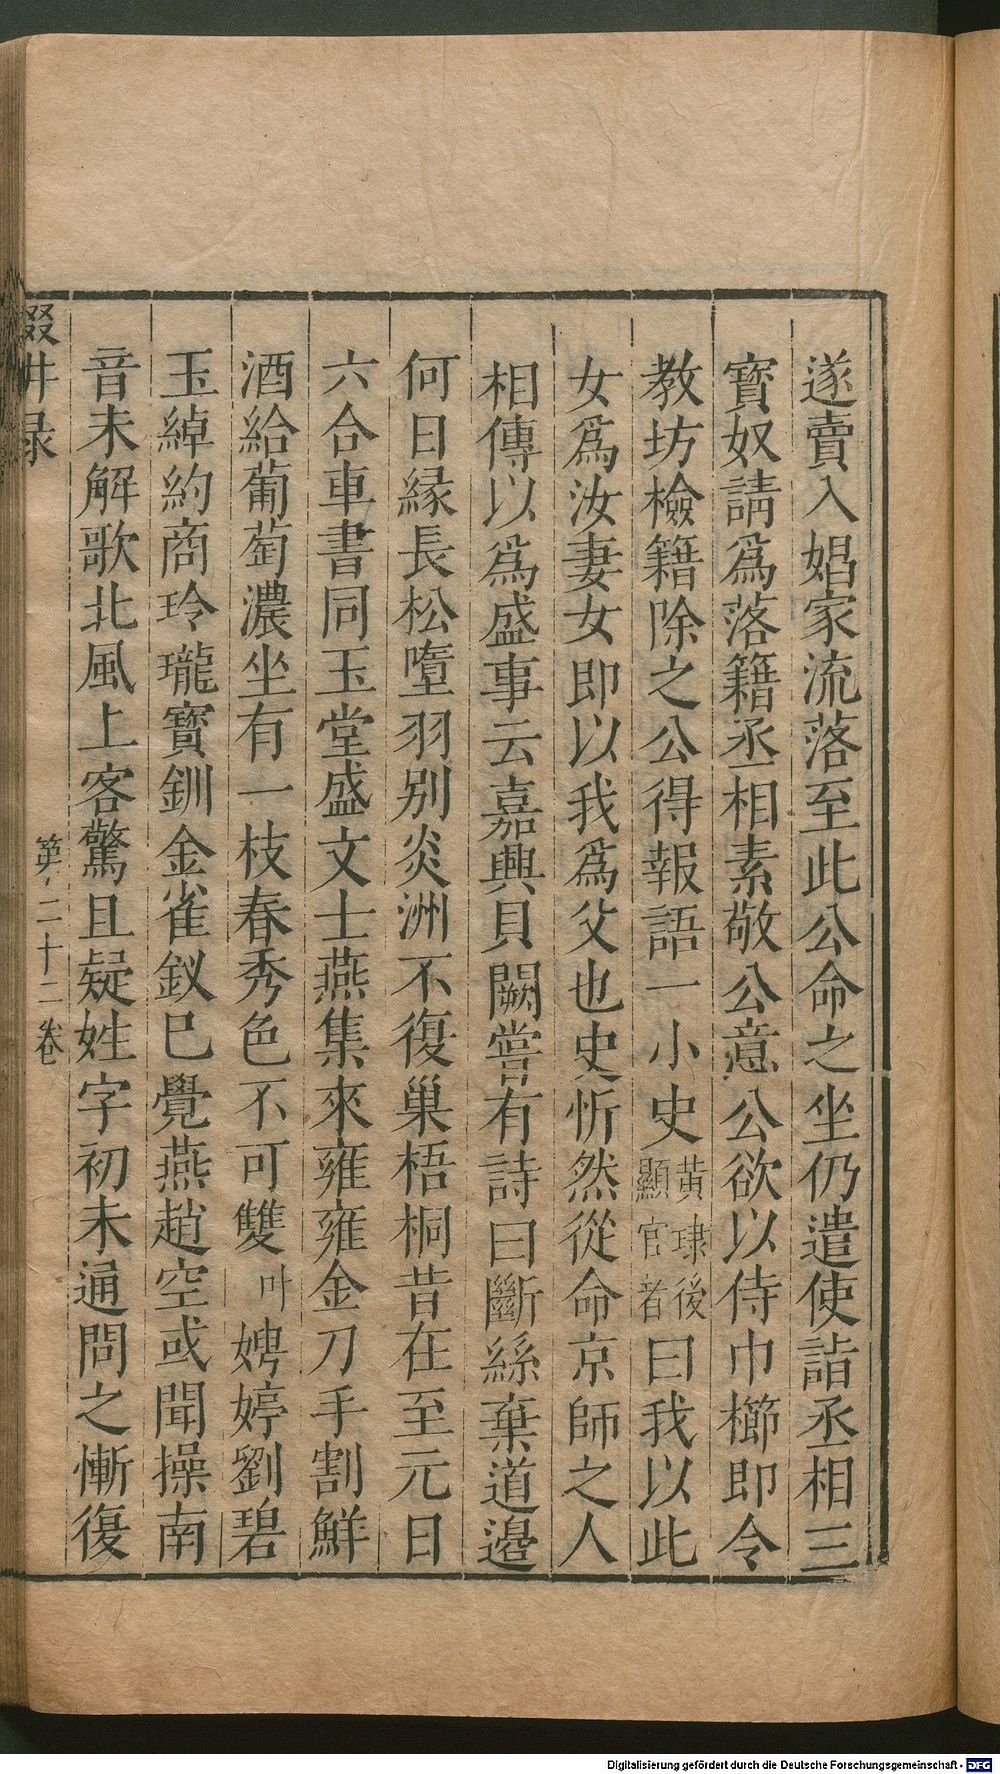 遂賣入娼家流落至此公命之坐仍遣使詣丞相三
寳奴請爲落籍丞相素敬公意公欲以侍巾櫛即令
教坊檢籍除之公得報語一小史黃㻉後顯官者曰我以此
女爲汝妻女即以我爲父也史忻然從命京師之人
相傳以爲盛事云嘉興貝闕嘗有詩曰斷絲棄道邉
何日縁長松墮羽别炎洲不復巢梧桐昔在至元日
六合車書同玉堂盛文士燕集來雍雍金刀手割鮮
酒給葡萄濃坐有一枝春秀色不可雙叶娉婷劉碧
玉綽約商玲瓏寳釧金雀釵巳覺燕趙空或聞操南
音未解歌北風上客驚且疑姓字初未通問之慚復
輟畊录
第二十二卷
Digitalisierung gefördert durch die Deutsche Forschungsgemeinschaft - DFG